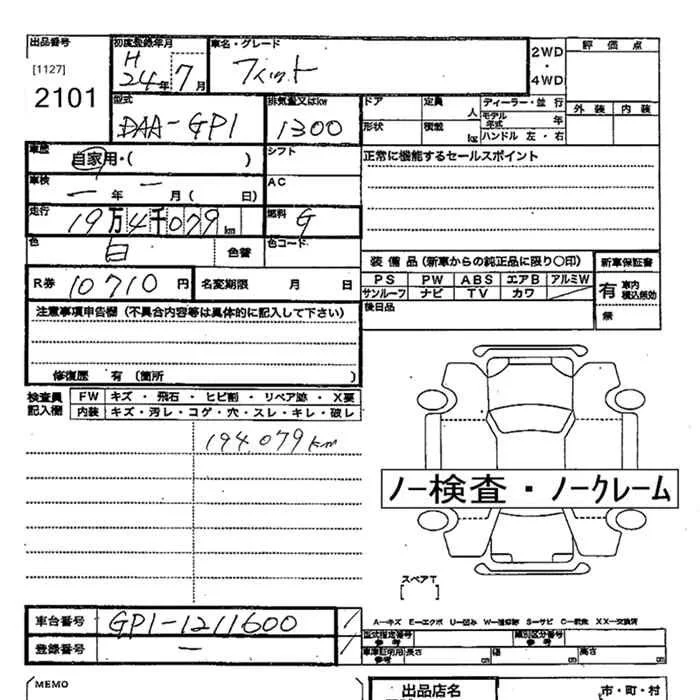 出品番号 初度登録年月 車名・グレード 2WD・4WD 評価点
[1127] H 24年 7月 フィット
2101 外装 内装
型式 排気量又はkw ドア 定員 人 ディーラー・並行
DAA-GP1 1300 形状 積載 kg モデル年式 年
ハンドル 左・右
車歴 自家用・( ) シフト 正常に機能するセールスポイント
車検 ー年 ー月( 日) AC
走行 19万4千079km 燃料 G
色 白 色替 色コード 装備品(新車からの純正品に限り○印) 新車保証書
R券 10710円 名変期限 月 日 PS PW ABS エアB アルミW 有 車内 積込無効
サンルーフ ナビ TV カワ
注意事項申告欄(不具合内容等は具体的に記入して下さい) 後日品 無
修復歴 有(箇所 )
検査員記入欄 FW キズ・飛石・ヒビ割・リペア跡・X要
内装 キズ・汚レ・コゲ・穴・スレ・キレ・破レ
194.079km
ノー検査・ノークレーム
スペアT
[ ]
車台番号 GP1-1211600 / A-キズ E-エクボ U-凹み W-補修跡 S-サビ C-腐食 XX-交換済
型式指定番号 参考 類別区分番号 参考
登録番号 ー / 車庫証明用 参考 長さ cm 幅 cm 高さ cm
MEMO 出品店名 市・町・村